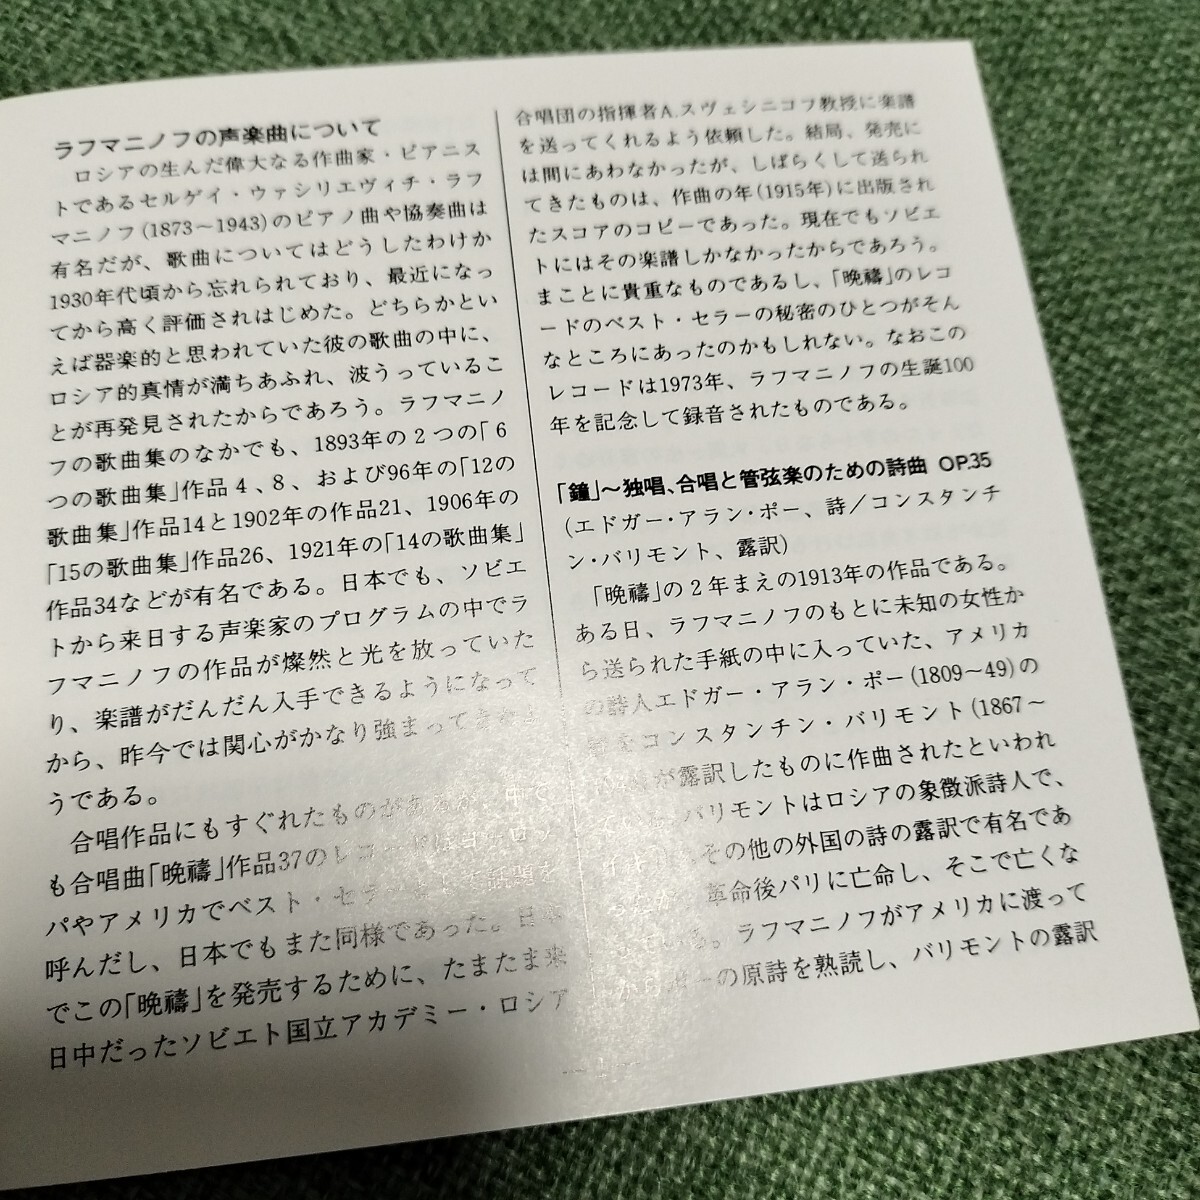 ラフマニノフの声楽曲について
ロシアの生んだ偉大なる作曲家・ピアニス
トであるセルゲイ・ウァシリエヴィチ・ラフ
マニノフ(1873〜1943)のピアノ曲や協奏曲は
有名だが、歌曲についてはどうしたわけか
1930年代頃から忘れられており、最近になっ
てから高く評価されはじめた。どちらかとい
えば器楽的と思われていた彼の歌曲の中に、
ロシア的真情が満ちあふれ、波うっているこ
とが再発見されたからであろう。ラフマニノ
フの歌曲集のなかでも、1893年の2つの「6
つの歌曲集」作品4、8、および96年の「12の
歌曲集」作品14と1902年の作品21、1906年の
「15の歌曲集」作品26、1921年の「14の歌曲集」
作品34などが有名である。日本でも、ソビエ
トから来日する声楽家のプログラムの中でラ
フマニノフの作品が燦然と光を放っていた
り、楽譜がだんだん入手できるようになって
から、昨今では関心がかなり強まってきたよ
うである。
合唱作品にもすぐれたものがあるが、中で
も合唱曲「晩禱」作品37のレコードはヨーロッ
パやアメリカでベスト・セラーとして話題を
呼んだし、日本でもまた同様であった。日本
でこの「晩禱」を発売するために、たまたま来
日中だったソビエト国立アカデミー・ロシア
合唱団の指揮者A.スヴェシニコフ教授に楽譜
を送ってくれるよう依頼した。結局、発売に
は間にあわなかったが、しばらくして送られ
てきたものは、作曲の年(1915年)に出版され
たスコアのコピーであった。現在でもソビエ
トにはその楽譜しかなかったからであろう。
まことに貴重なものであるし、「晩禱」のレコ
ードのベスト・セラーの秘密のひとつがそん
なところにあったのかもしれない。なおこの
レコードは1973年、ラフマニノフの生誕100
年を記念して録音されたものである。
「鐘」〜独唱、合唱と管弦楽のための詩曲 OP.35
(エドガー・アラン・ポー、詩/コンスタンチ
ン・バリモント、露訳)
「晩禱」の2年まえの1913年の作品である。
ある日、ラフマニノフのもとに未知の女性か
ら送られた手紙の中に入っていた、アメリカ
の詩人エドガー・アラン・ポー(1809〜49)の
詩をコンスタンチン・バリモント(1867〜
が露訳したものに作曲されたといわれ
ている。バリモントはロシアの象徴派詩人で、
その他の外国の詩の露訳で有名であ
革命後パリに亡命し、そこで亡くな
いる。ラフマニノフがアメリカに渡って
からポーの原詩を熟読し、バリモントの露訳
— 1 —